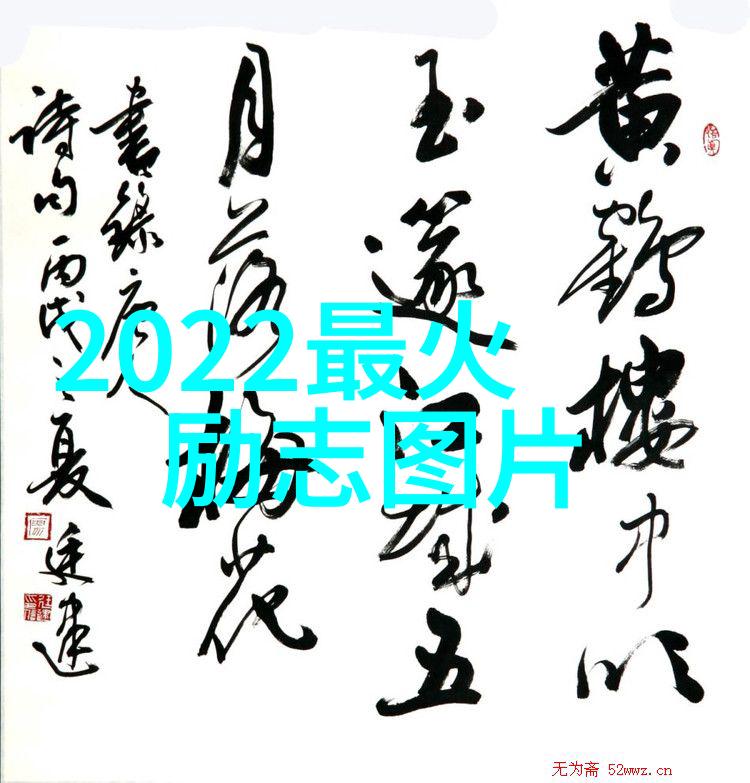 黄鶴樓中吹
玉篴江城五
月落梅花
書錄唐人
詩句丙戌之夏廷建
2022最火
励志图片
无为斋 52wwz.cn